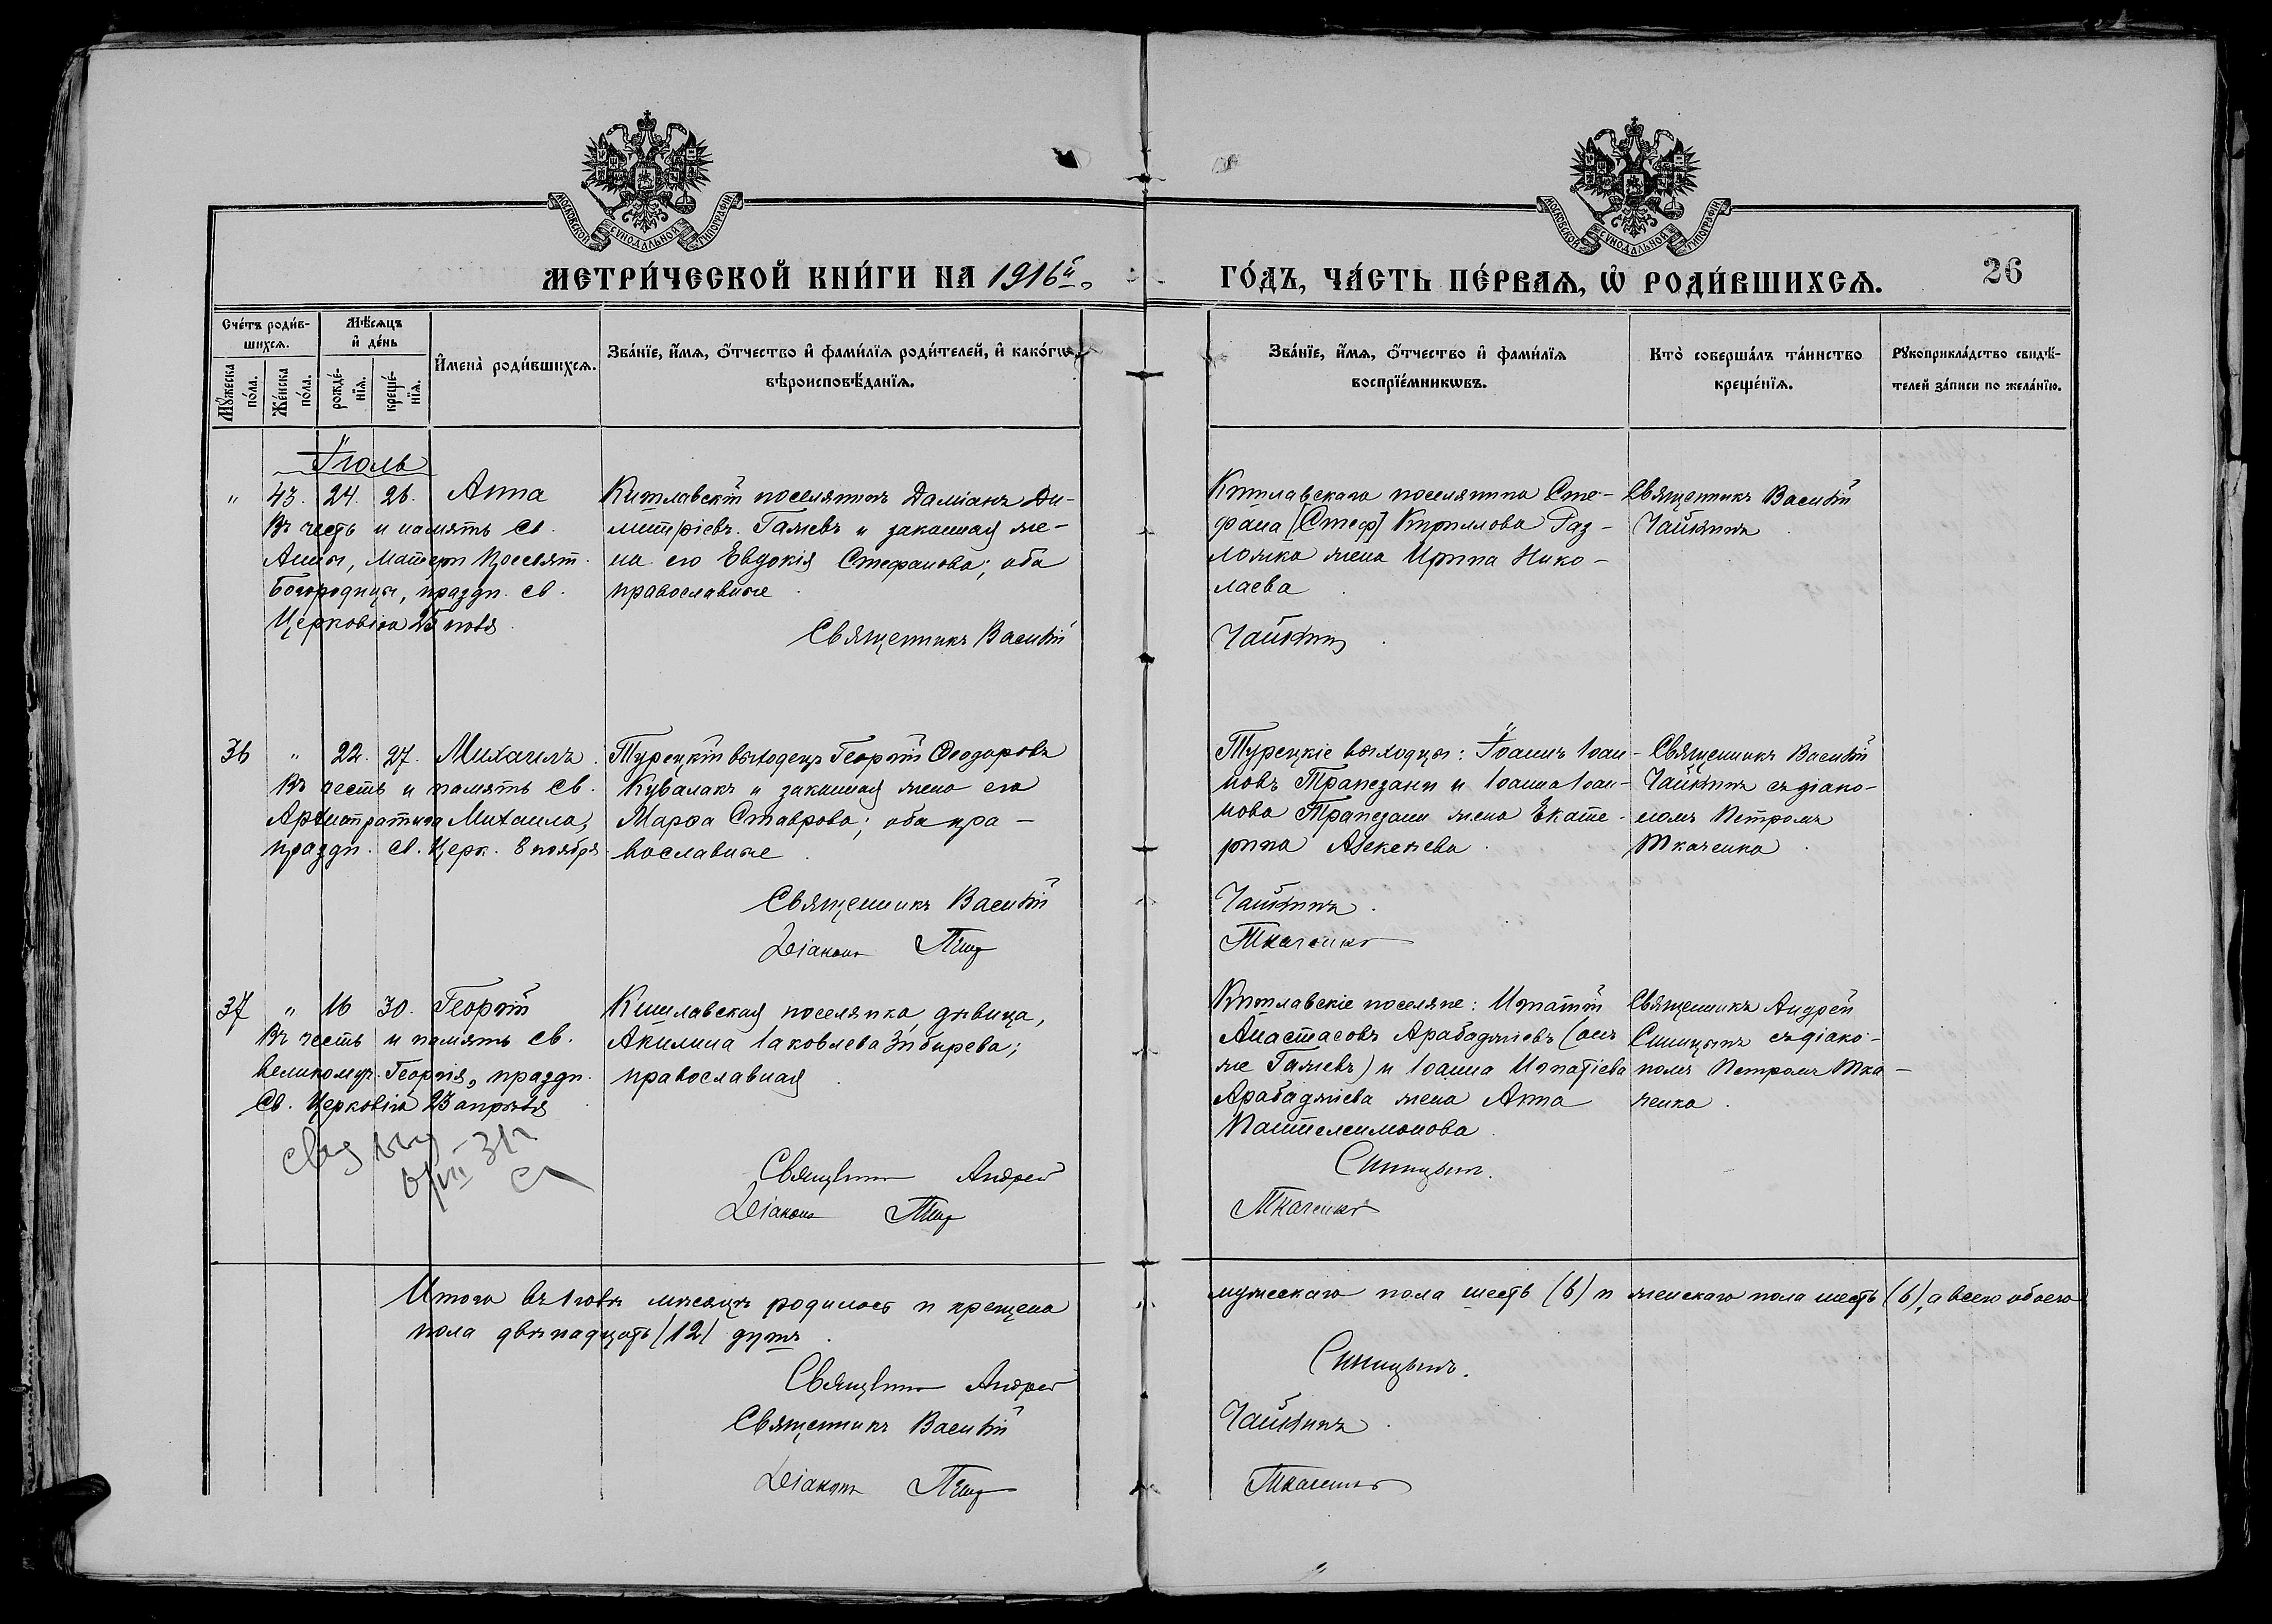 МОСКОВСКОЙ СѴНОДАЛЬНОЙ ТИПОГРАФІИ
МОСКОВСКОЙ СѴНОДАЛЬНОЙ ТИПОГРАФІИ
МЕТРИ́ЧЕСКОЙ КНИ́ГИ НА 1916й
ГО́ДЪ, ЧА́СТЬ ПЕ́РВАѦ, Ѡ҆ РОДИ́ВШИХСѦ.
26
Сче́тъ роди́в-
шихсѧ.
Мѣ́сѧцъ
и҆ де́нь
Мꙋ́жеска
по́ла.
Же́нска
по́ла.
рожде́-
нїѧ.
креще́-
нїѧ.
И҆мена̀ роди́вшихсѧ.
Зва́нїе, и҆́мѧ, ѻ҆́тчество и҆ фами́лїѧ роди́телей, и҆ како́гѡ
вѣроисповѣ́данїѧ.
Зва́нїе, и҆́мѧ, ѻ҆́тчество и҆ фами́лїѧ
воспрїе́мникѡвъ.
Кто̀ соверша́лъ та́инство
креще́нїѧ.
Рꙋкоприкла́дство свидѣ́-
телей за́писи по жела́нїю.
Іюль
" 43. 24. 26. Анна
Въ честь и память Св.
Анны, Матери Пресвят.
Богородицы, праздн. Св.
Церковію 25 іюля.
Кишлавскій поселянинъ Даміанъ Ди-
митріевъ Гамевъ и законная же-
на его Евдокія Стефанова; оба
православные.
Священникъ Василій
Кишлавскаго поселянина Сте-
фана [Стеф] Кириллова Раз-
ложка жена Ирина Нико-
лаева
Чайкинъ.
Священникъ Василій
Чайкинъ.
36 " 22. 27. Михаилъ.
Въ честь и память Св.
Архистратига Михаила,
праздн. Св. Церк. 8 ноября
Турецкій выходецъ Георгій Ѳеодоровъ
Кувалакъ и законная жена его
Марѳа Ставрова; оба пра-
вославные.
Священникъ Василій
Діаконъ Петръ
Турецкіе выходцы: Іоаннъ Іоан-
новъ Трапезани и Іоанна Іоан-
нова Трапезани жена Екате-
рина Алексѣева.
Чайкинъ.
Ткаченко
Священникъ Василій
Чайкинъ съ діако-
номъ Петромъ
Ткаченко.
37 " 16 30. Георгій
Въ честь и память Св.
великомуч. Георгія, праздн.
Св. Церковію 23 апрѣля.
Кишлавская поселянка, дѣвица,
Акилина Іаковлева Зибирева;
православная.
Священникъ Андрей
Діаконъ Петръ
Кишлавскіе поселяне: Игнатій
Анастасовъ Арабаджіевъ (онъ
же Гамевъ) и Іоанна Игнатіева
Арабаджіева жена Анна
Пантелеимонова.
Синицынъ.
Ткаченко
Священникъ Андрей
Синицынъ съ діако-
номъ Петромъ Тка-
ченко.
Итого въ Іюлѣ мѣсяцѣ родилось и крещено
мужескаго пола шесть (6) и женскаго пола шесть (6), а всего обоего
пола двѣнадцать (12) душъ.
Священникъ Андрей
Синицынъ.
Священникъ Василій
Чайкинъ.
Діаконъ Петръ
Ткаченко